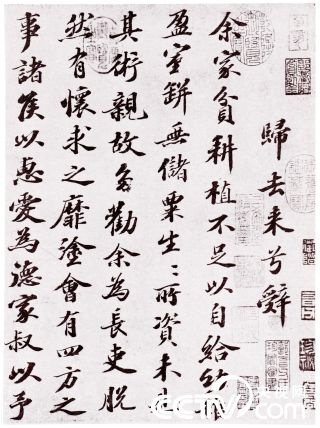 歸去来兮辭
余家貧耕植不足以自給幼
盈室缾無儲粟生〻所資未
其術親故多勸余為長吏脫
然有懷求之靡塗會有四方之
事諸侯以惠愛為德家叔以予
央视网
CCTV.com